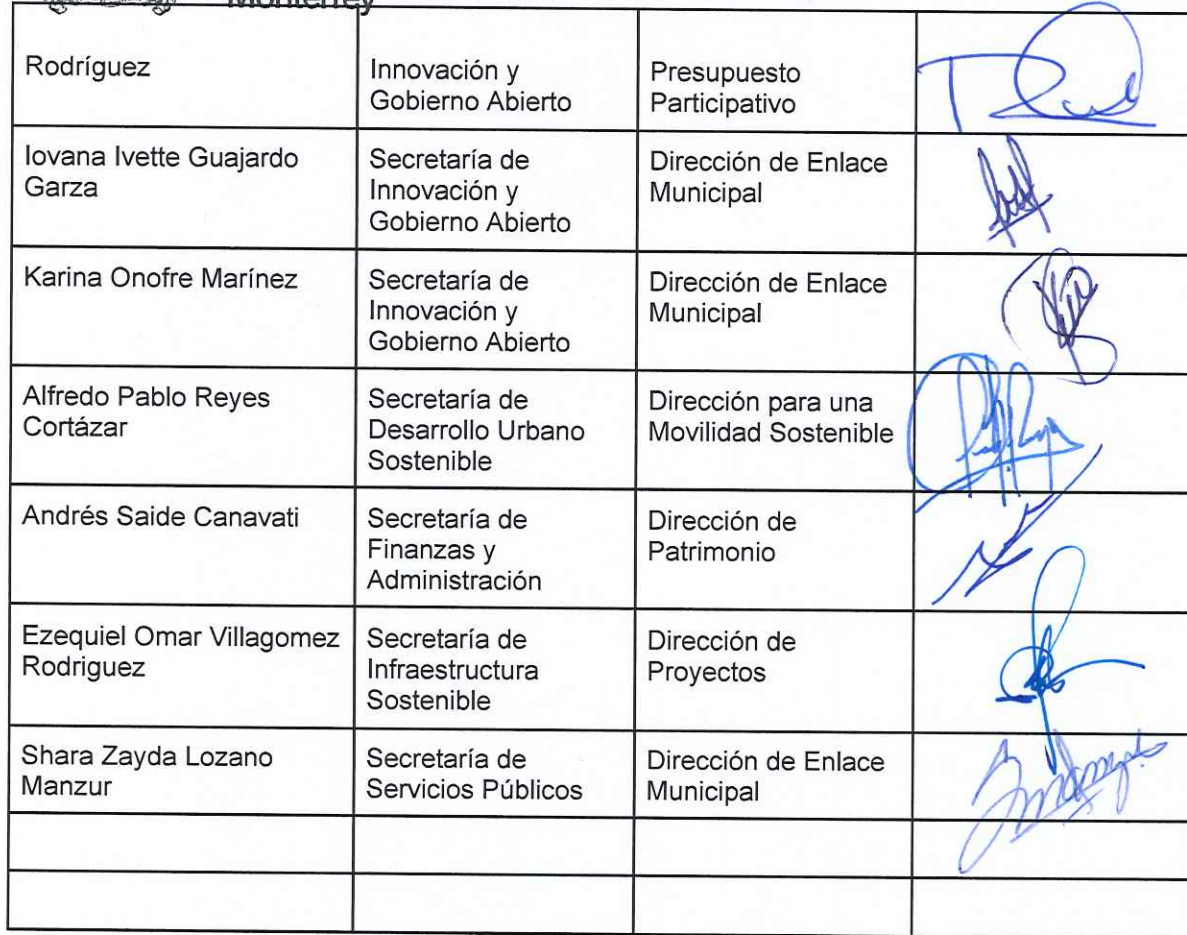 Monterrey
Rodríguez
Innovación y
Gobierno Abierto
Presupuesto
Participativo
Iovana Ivette Guajardo
Garza
Secretaría de
Innovación y
Gobierno Abierto
Dirección de Enlace
Municipal
Karina Onofre Marínez
Secretaría de
Innovación y
Gobierno Abierto
Dirección de Enlace
Municipal
Alfredo Pablo Reyes
Cortázar
Secretaría de
Desarrollo Urbano
Sostenible
Dirección para una
Movilidad Sostenible
Andrés Saide Canavati
Secretaría de
Finanzas y
Administración
Dirección de
Patrimonio
Ezequiel Omar Villagomez
Rodriguez
Secretaría de
Infraestructura
Sostenible
Dirección de
Proyectos
Shara Zayda Lozano
Manzur
Secretaría de
Servicios Públicos
Dirección de Enlace
Municipal